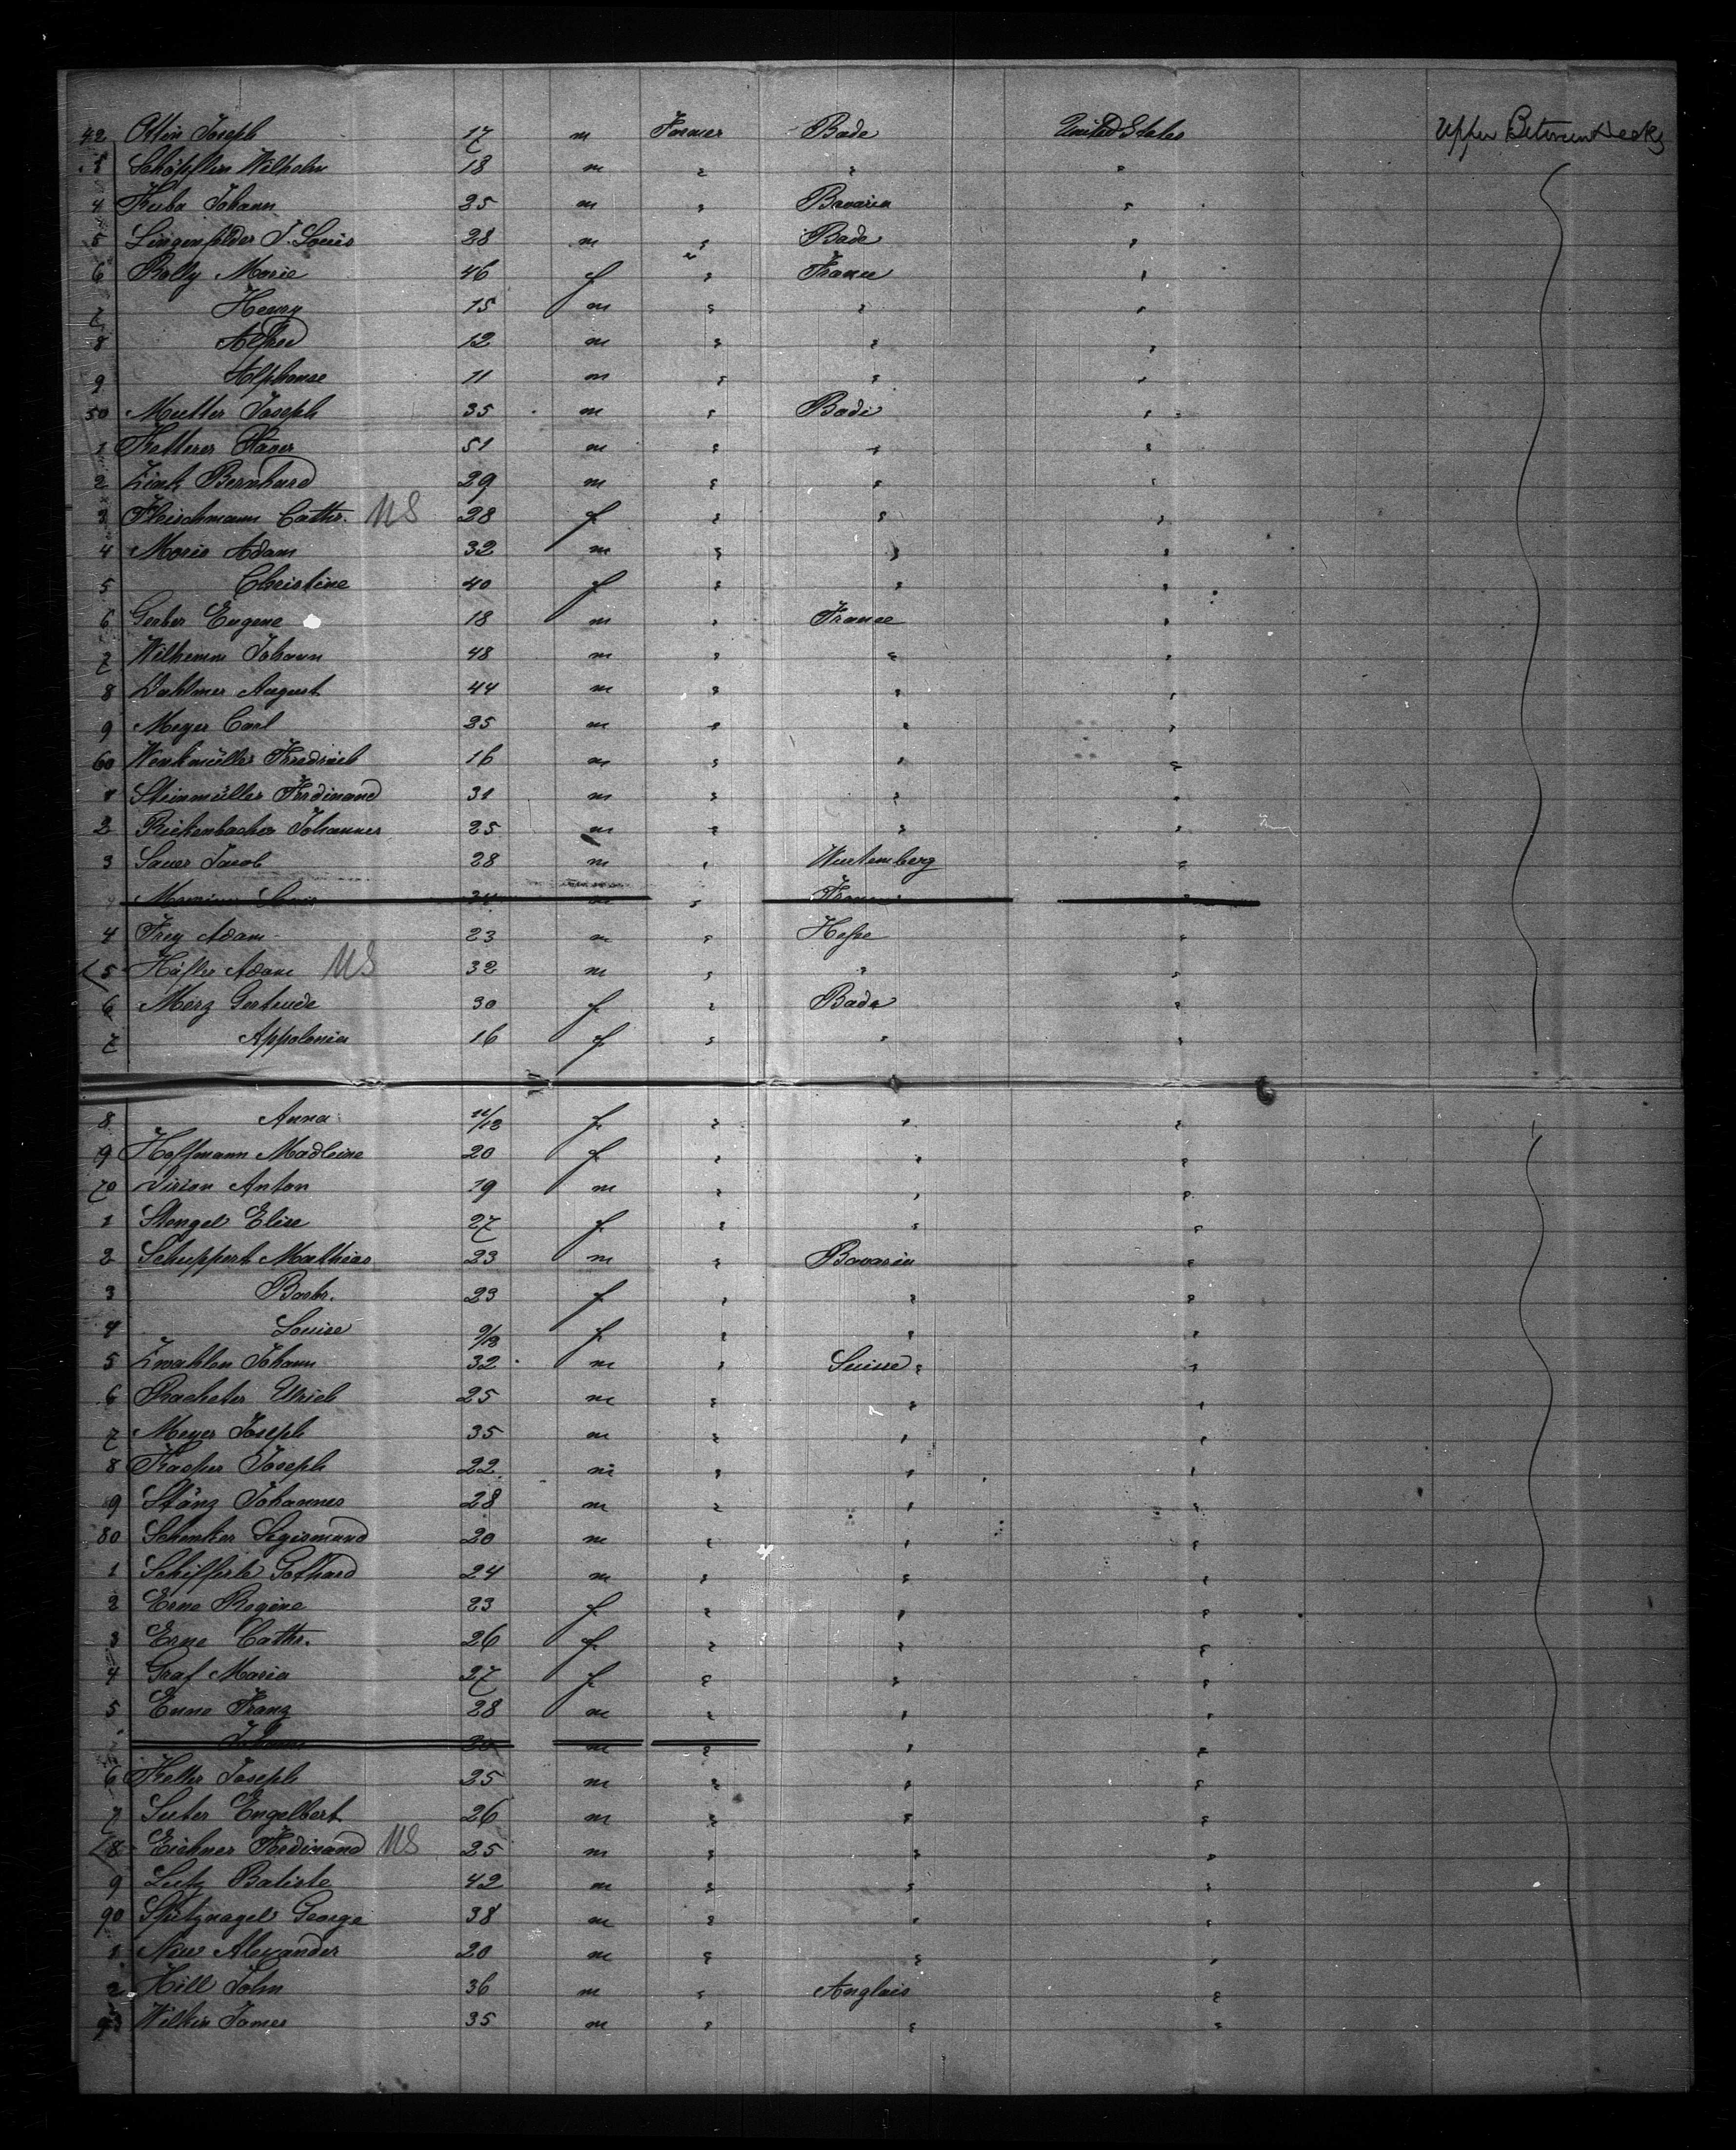 42 Ottin Joseph 17 m Farmer Bade United States Upper Between decks
3 Schöpflin Wilhelm 18 m " " "
4 Kuba Johann 25 m " Bavaria "
5 Lingenfelder J. Louis 28 m " Bade "
6 Rolly Marie 46 f " France "
7 Henry 15 m " " "
8 Alfred 12 m " " "
9 Alphonse 11 m " " "
50 Mutter Joseph 35 m " Bade "
1 Ketterer Xaver 51 m " " "
2 Bernhard 29 m " " "
3 Fleischmann Cathr. US 28 f " " "
4 Moris Adam 32 m " " "
5 Christine 40 f " " "
6 Gerber Eugene 18 m " France "
7 Wilhemm Johann 48 m " " "
8 Dahlmer August 44 m " " "
9 Meyer Carl 25 m " " "
60 Wenkmüller Friedrich 16 m " " "
1 Steinmüller Ferdinand 31 m " " "
2 Rickenbacher Johannes 25 m " " "
3 Sauer Jacob 28 m " Wurtemberg "
m " "
4 Frey Adam 23 m " Hesse "
5 Häfler Adam US 32 m " " "
6 Merz Gertrude 30 f " Bade "
7 Appolonia 16 f " " "
8 Anna 11/12 f " " "
9 Hoffmann Madleine 20 f " " "
70 Virion Anton 19 m " " "
1 Stengel Elise 27 f " " "
2 Schuppert Mathias 23 m " Bavaria "
3 Barbr. 23 f " " "
4 Louise 9/12 f " " "
5 Zwahlen Johann 32 m " Suisse "
6 Racheter Ulrich 25 m " " "
7 Meyer Joseph 35 m " " "
8 Kasper Joseph 22 m " " "
9 Stänz Johannes 28 m " " "
80 Schenker Segismund 20 m " " "
1 Schifferle Gothard 24 m " " "
2 Erne Regine 23 f " " "
3 Erne Cathr. 26 f " " "
4 Graf Maria 27 f " " "
5 Enne Franz 28 m " " "
Johann m " " "
6 Keller Joseph 25 m " " "
7 Suter Engelbert 26 m " " "
8 Eichner Ferdinand US 25 m " " "
9 Lutz Batiste 42 m " " "
90 Spitznagel George 38 m " " "
1 Alexander 20 m " " "
2 Hill John 36 m " Anglais "
93 Wilkin James 35 m " " "